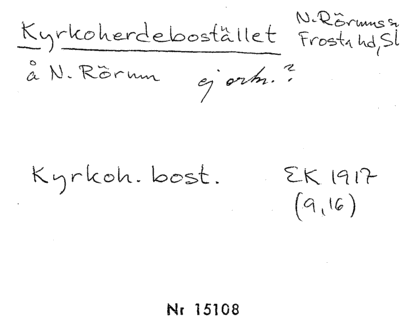 Kyrkoherdebostället
N. Rörums s
Frosta hd, Sk
å N. Rörum ej ortn.?
Kyrkoh. bost.
EK 1917
(9,16)
Nr 15108